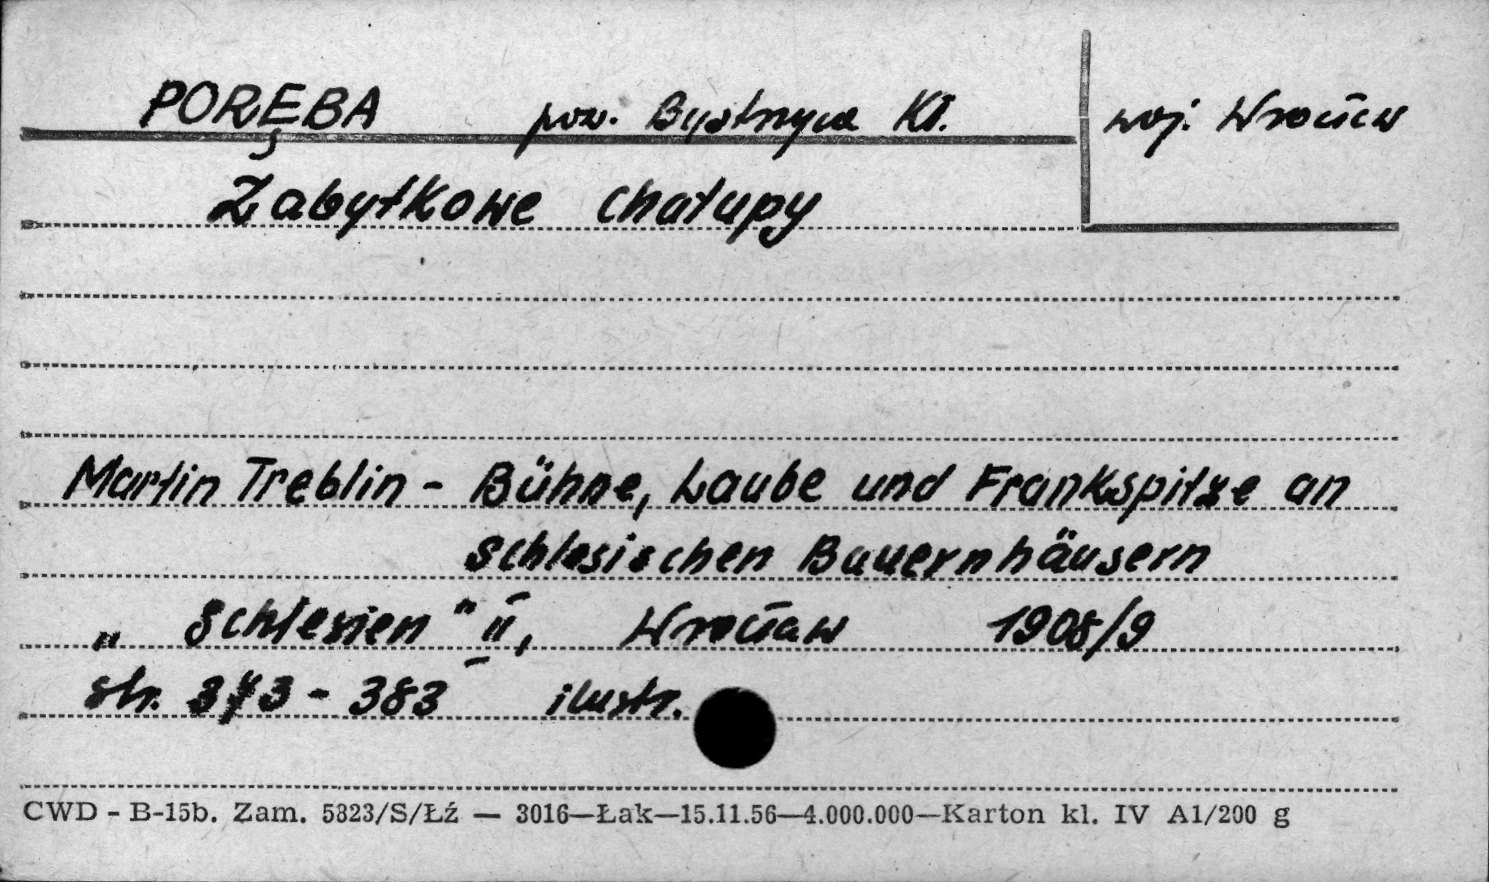 PORĘBA pow. Bystrzyca Kł. woj. Wrocław
Zabytkowe chałupy
Martin Treblin - Bühne, Laube und Frankspitze an
schlesischen Bauernhäusern
„Schlesien" II, Wrocław 1908/9
str. 373 - 383 ilustr.
CWD - B-15b. Zam. 5823/S/Łź — 3016—Łak—15.11.56—4.000.000—Karton kl. IV A1/200 g